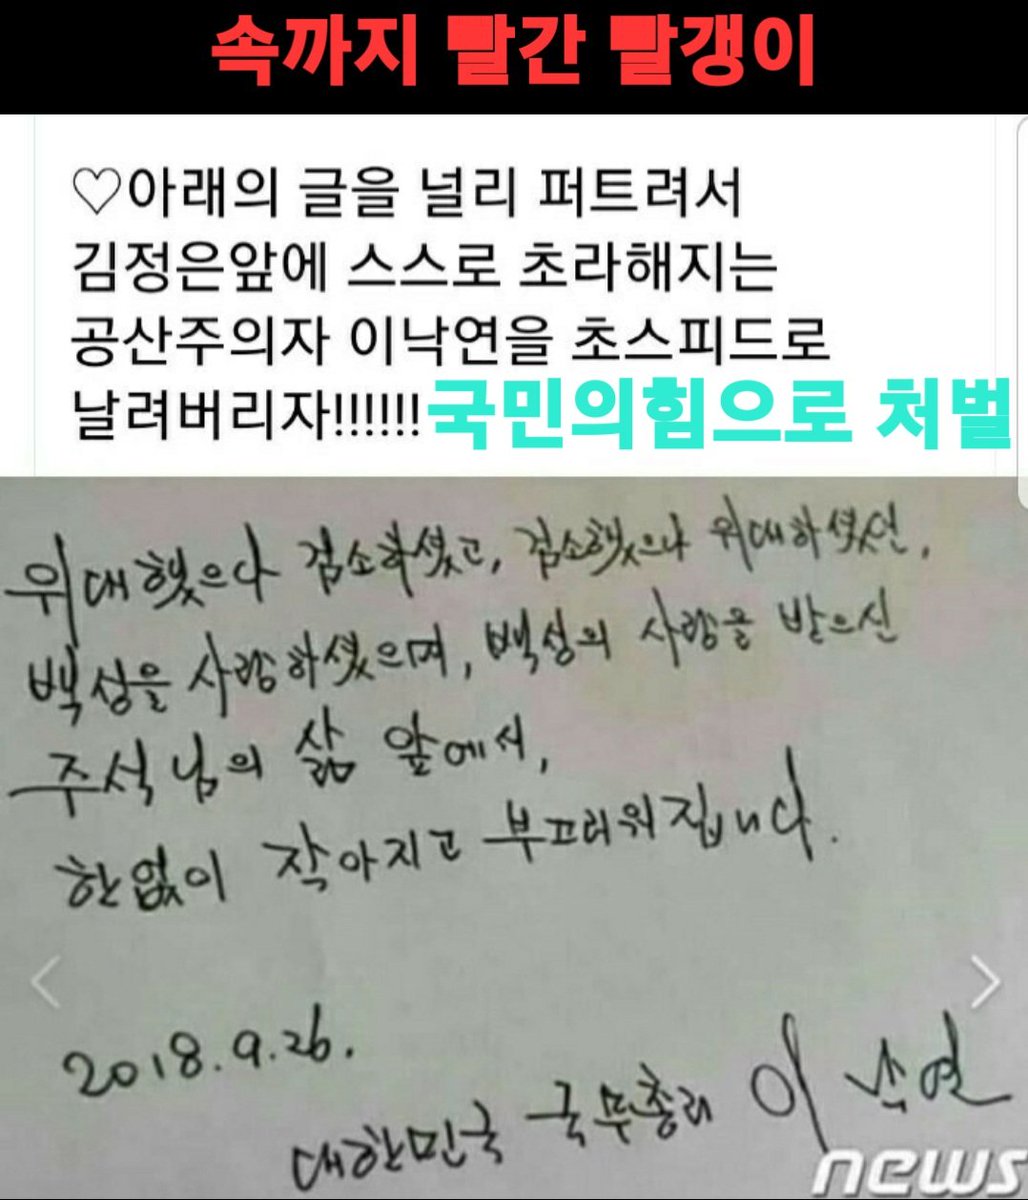 속까지 빨간 빨갱이
♡아래의 글을 널리 퍼트려서
김정은앞에 스스로 초라해지는
공산주의자 이낙연을 초스피드로
날려버리자!!!!!!국민의힘으로 처벌
위대했으나 검소하셨고, 검소했으나 위대하셨던,
백성을 사랑하셨으며, 백성의 사랑을 받으신
주석님의 삶 앞에서,
한없이 작아지고 부끄러워집니다.
2018.9.26.
대한민국 국무총리 이낙연
news